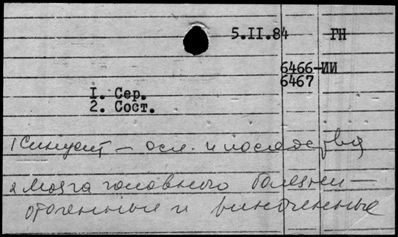 5.II.84 ГН
6466-ИИ
6467
I. Сер.
2. Сост.
1 Синусит – осл. и последствия
2 Мозга головного болезни –
отогенные и риногенные